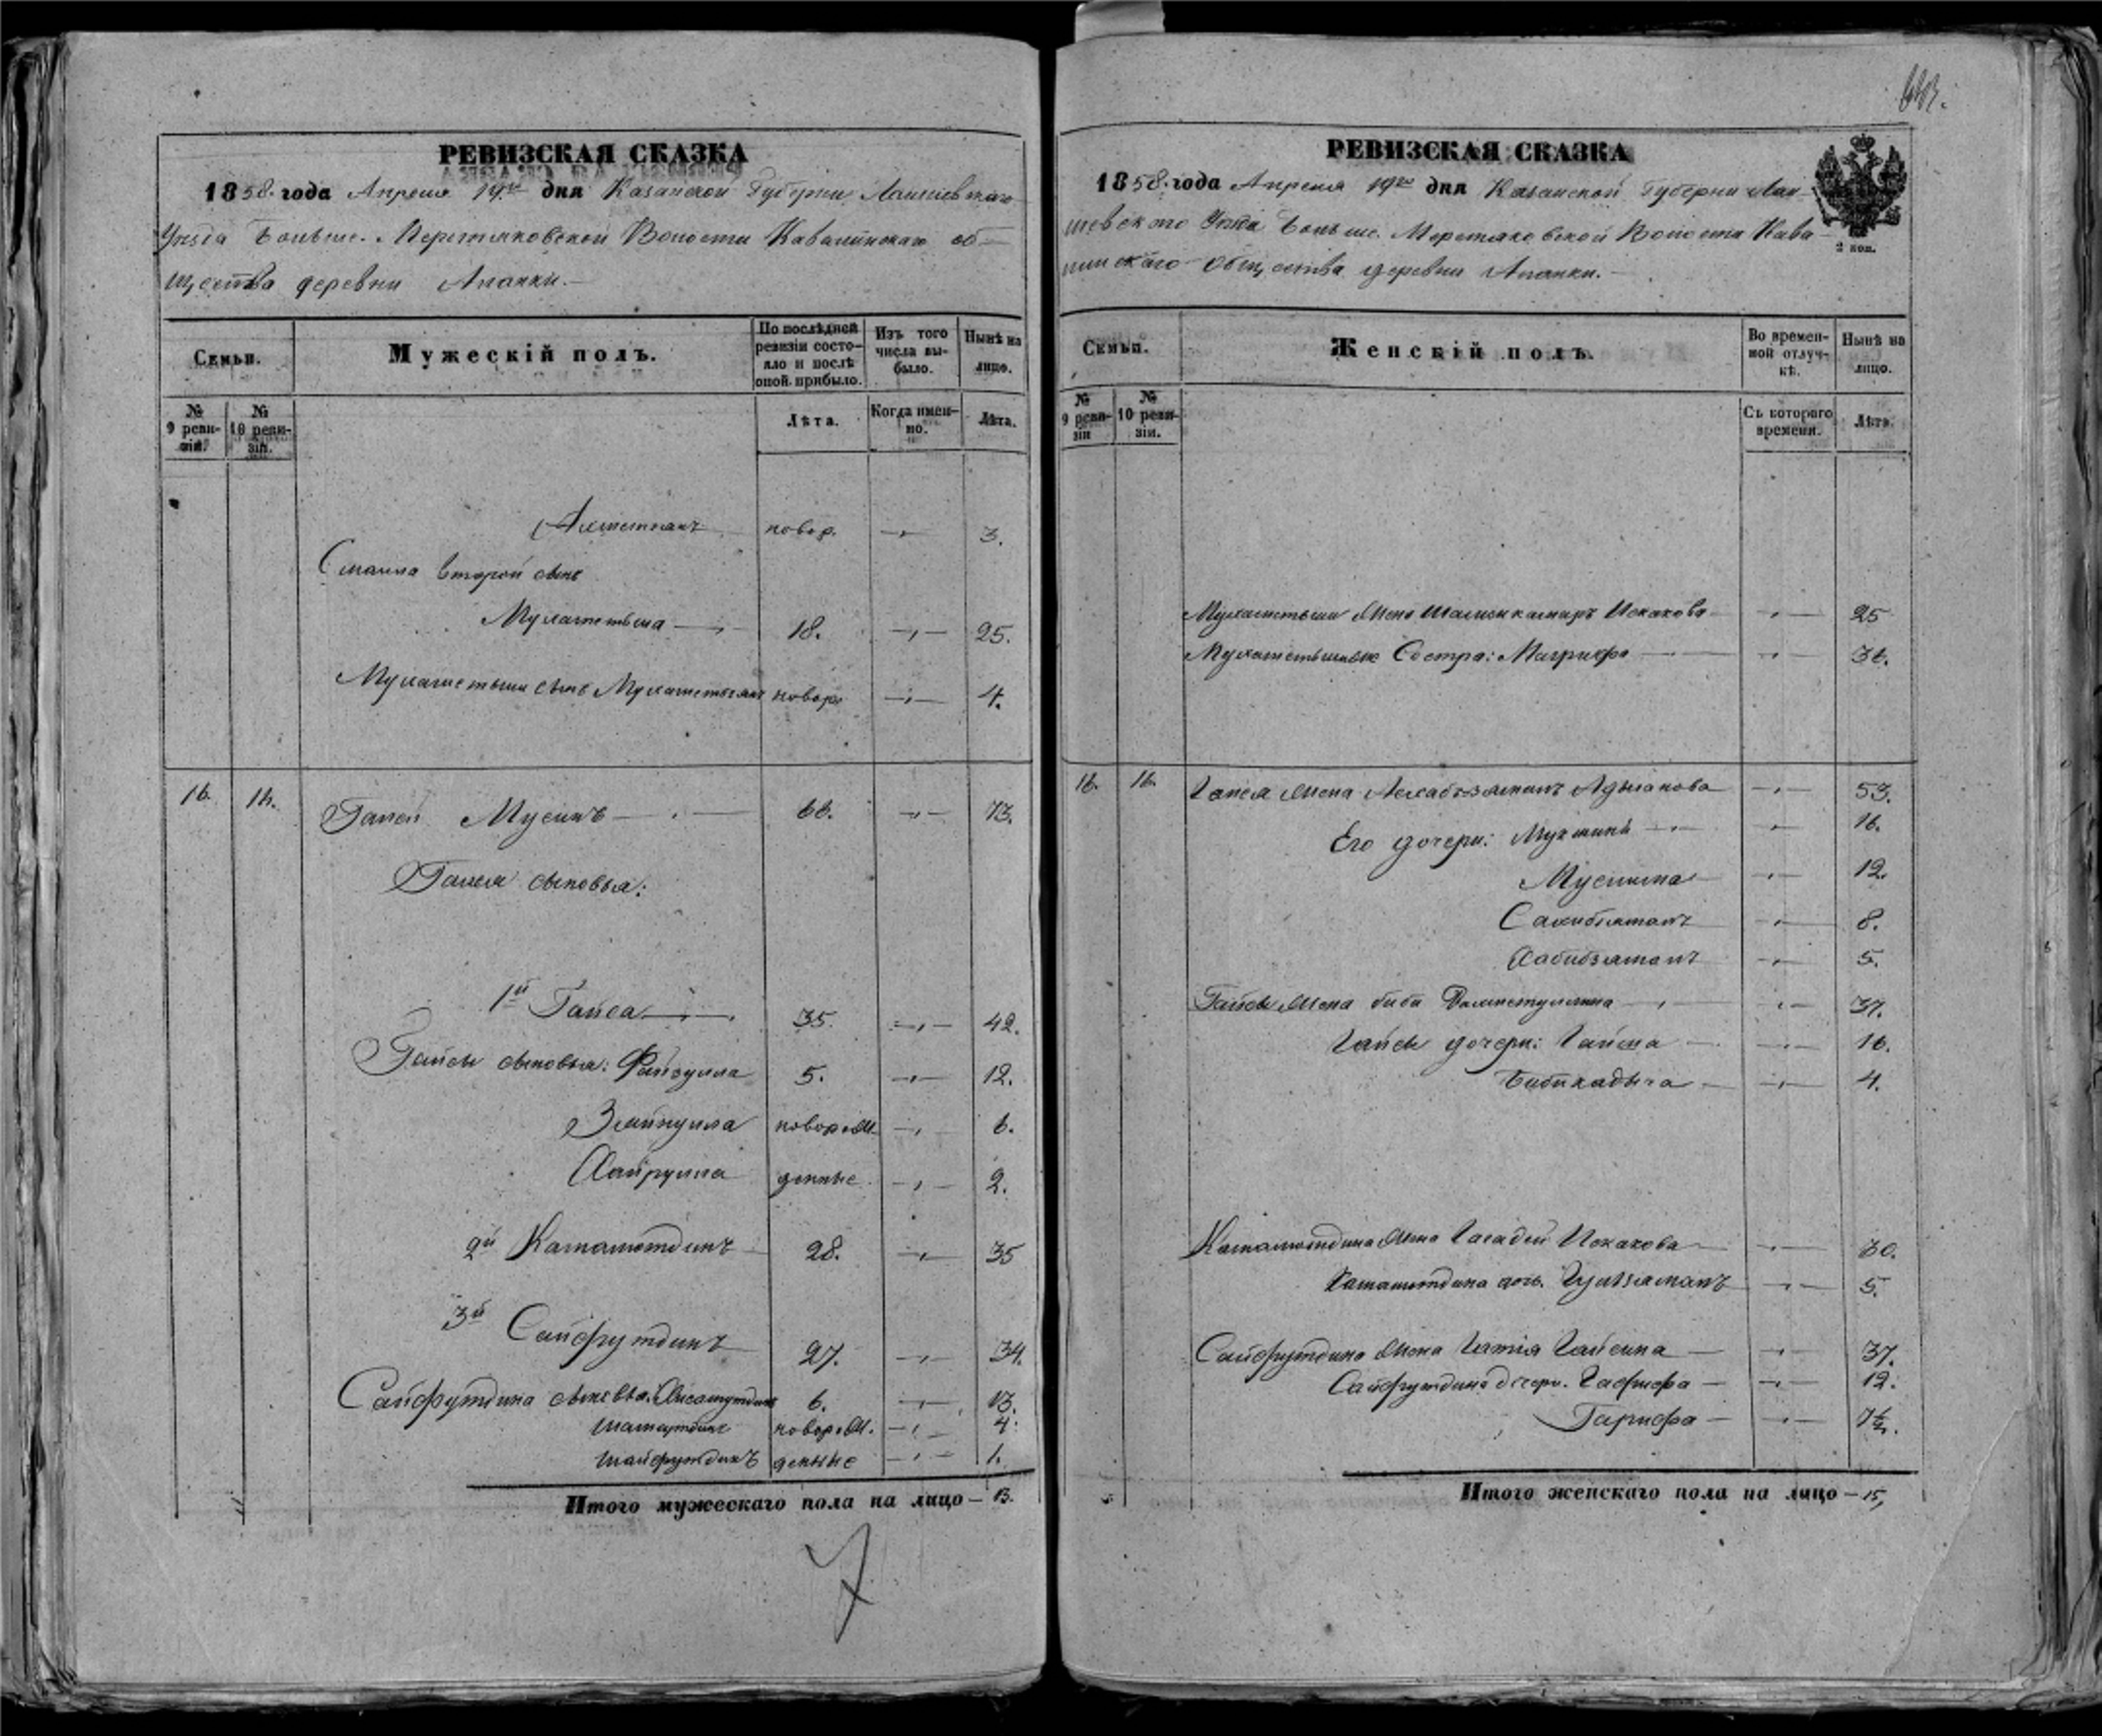 РЕВИЗСКАЯ СКАЗКА
1858. года Апреля 19го дня Казанской Губерни Лаишевскаго
Уезда Больше. Меретяковской Волости Кавалинскаго об-
щества деревни Апанки.
Семьи.
Мужескій полъ.
По послѣдней ревизіи состояло и послѣ оной прибыло.
Изъ того числа выбыло.
Нынѣ на лицо.
№ 9 ревизіи.
№ 10 ревизіи.
Лѣта.
Когда именно.
Лѣта.
Ахметжанъ новор. 3.
Смаила второй сынъ
Мухаметьша 18. 25.
Мухаметьши сынъ Мухаметьянъ новор. 4.
16. 16. Галей Мусинъ 66. 73.
Галея сыновья:
1й Гайса 35. 42.
Гайсы сыновья: Файзулла 5. 12.
Зейнулла новорож 6.
Хайрулла денные 2.
2й Камалютдинъ 28. 35
3й Сайфутдинъ 27. 34.
Сайфутдина сыновья: 6. 13.
новорож. 4.
денные 1.
Итого мужескаго пола на лицо – 13.
7
РЕВИЗСКАЯ СКАЗКА
1858. года Апреля 19го дня Казанской Губерни Лаи-
шевского Уезда Больше. Меретяковской Волости Кава-
линскаго общества деревни Апанки.
2 коп.
Семьи.
Женскій полъ.
Во временной отлучкѣ.
Нынѣ на лицо.
№ 9 ревизіи
№ 10 ревизіи.
Съ котораго времени.
Лѣта.
Мухаметьши жена Шамсикамаръ Искакова 25
Сестра: Магрифа
16. 16. Галея жена 53.
Его дочери: 16.
Муслима 12.
Сахибзямалъ 8.
Хабибзямалъ 5.
Гайсы жена биби 37.
Гайсы дочери: Гайша 16.
Бибихадыча 4.
Камалютдина жена Искакова 30.
Камалютдина дочь. Гульзямалъ 5.
Сайфутдина жена Гайсина 37.
Сайфутдина дочери. 12.
Гарифа
Итого женскаго пола на лицо – 15,